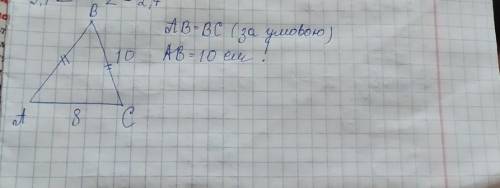 B
AB=BC (за умовою)
10
AB=10 см!
A
8
C